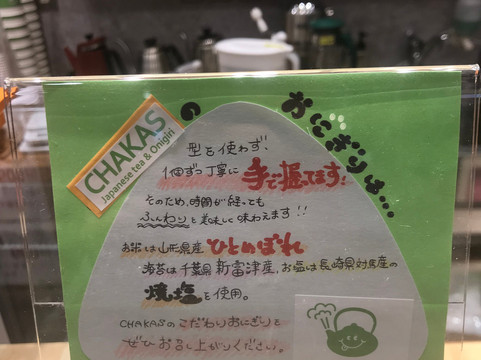 CHAKAS
Japanese tea & Onigiri
の
おにぎりは…
型を使わず、
1個ずつ丁寧に 手で握ってます!
そのため、時間が経っても
ふんわりと美味しく味わえます!!
お米は山形県産 ひとめぼれ
海苔は千葉県 新富津産、お塩は長崎県対馬産の
焼塩を使用。
CHAKASのこだわりおにぎりを
ぜひお召し上がりください。